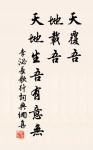 天覆吾
地載吾
天地生吾有意無
李泌長歌行詩句